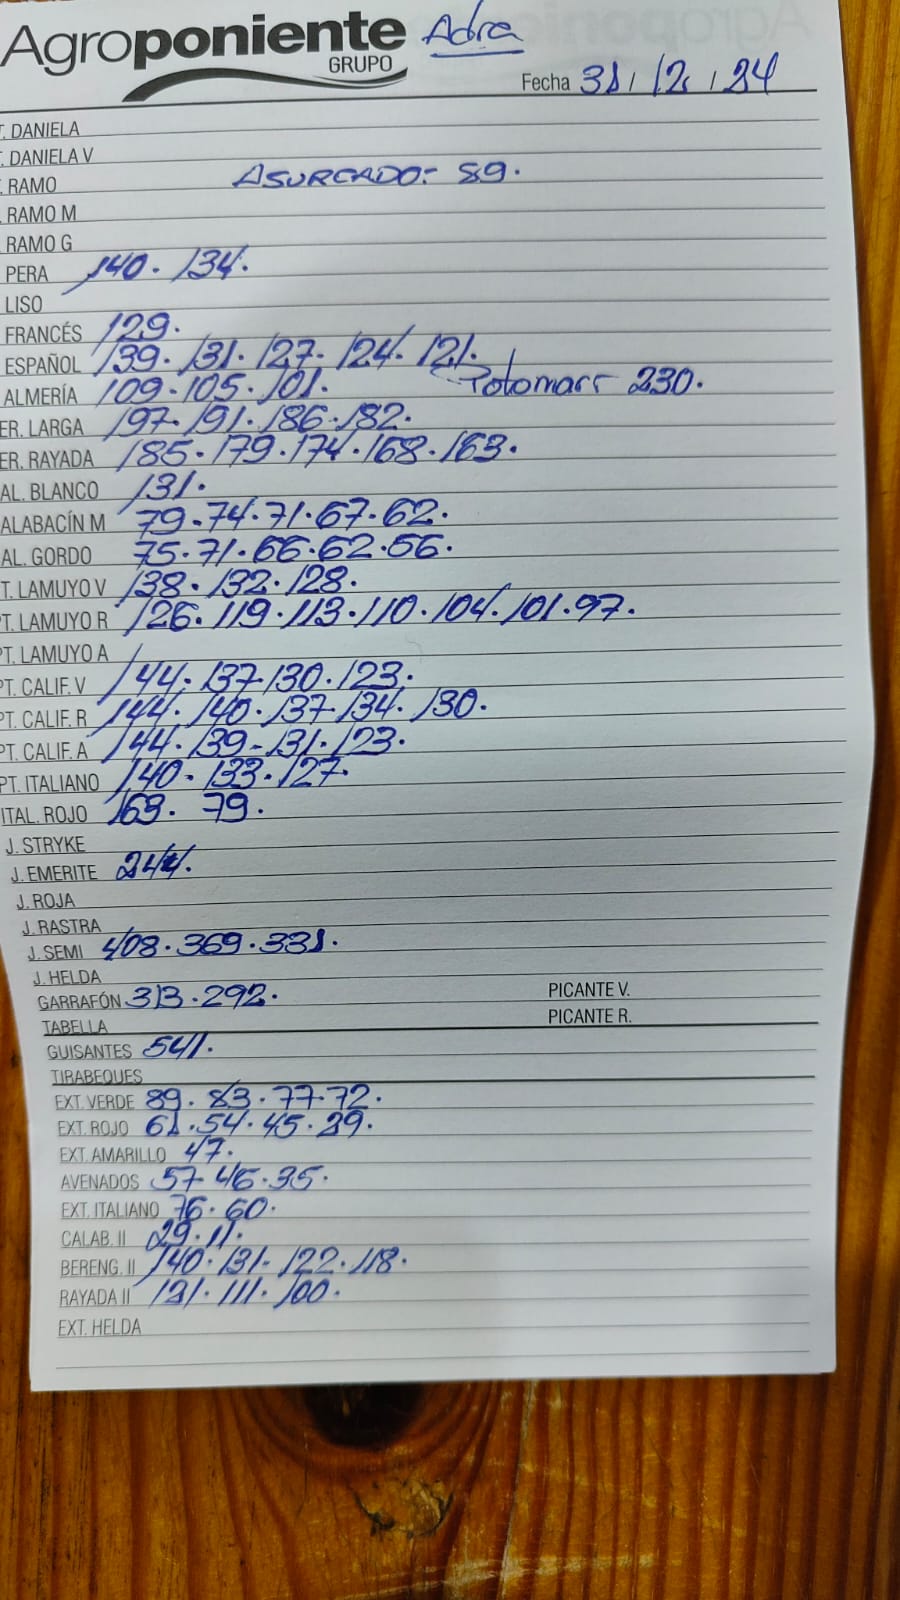 Agroponiente Adra
GRUPO
Fecha 31/12/24
T. DANIELA
T. DANIELA V
. RAMO ASURCADO- 89.
. RAMO M
RAMO G
PERA 140. 134.
LISO
FRANCÉS 129.
ESPAÑOL 139. 131. 127. 124. 121.
ALMERÍA 109.105.101. 230.
ER. LARGA 197. 191. 186. 182.
ER. RAYADA 185.179.174.168.163.
AL. BLANCO 131.
ALABACÍN M 79-74.71.67.62.
AL. GORDO 75.71.66.62.56.
T. LAMUYO V 138.132.128.
PT. LAMUYO R 126.119.113.110.104.101.97.
PT. LAMUYO A
PT. CALIF. V 144.137.130.123.
PT. CALIF. R 144.140.137.134.130.
PT. CALIF. A 144.139-131.123.
PT. ITALIANO 140.133.127.
ITAL. ROJO 169. 79.
J. STRYKE
J. EMERITE 244.
J. ROJA
J. RASTRA
J. SEMI 408.369.331.
J. HELDA
GARRAFÓN 313.292. PICANTE V.
TABELLA PICANTE R.
GUISANTES 541.
TIRABEQUES
EXT. VERDE 89.83.77.72.
EXT. ROJO 61.54.45.39.
EXT. AMARILLO 47.
AVENADOS 57.46.35.
EXT. ITALIANO 76.60.
CALAB. II 29.11.
BERENG. II 140.131-122.118.
RAYADA II 121.111.100.
EXT. HELDA